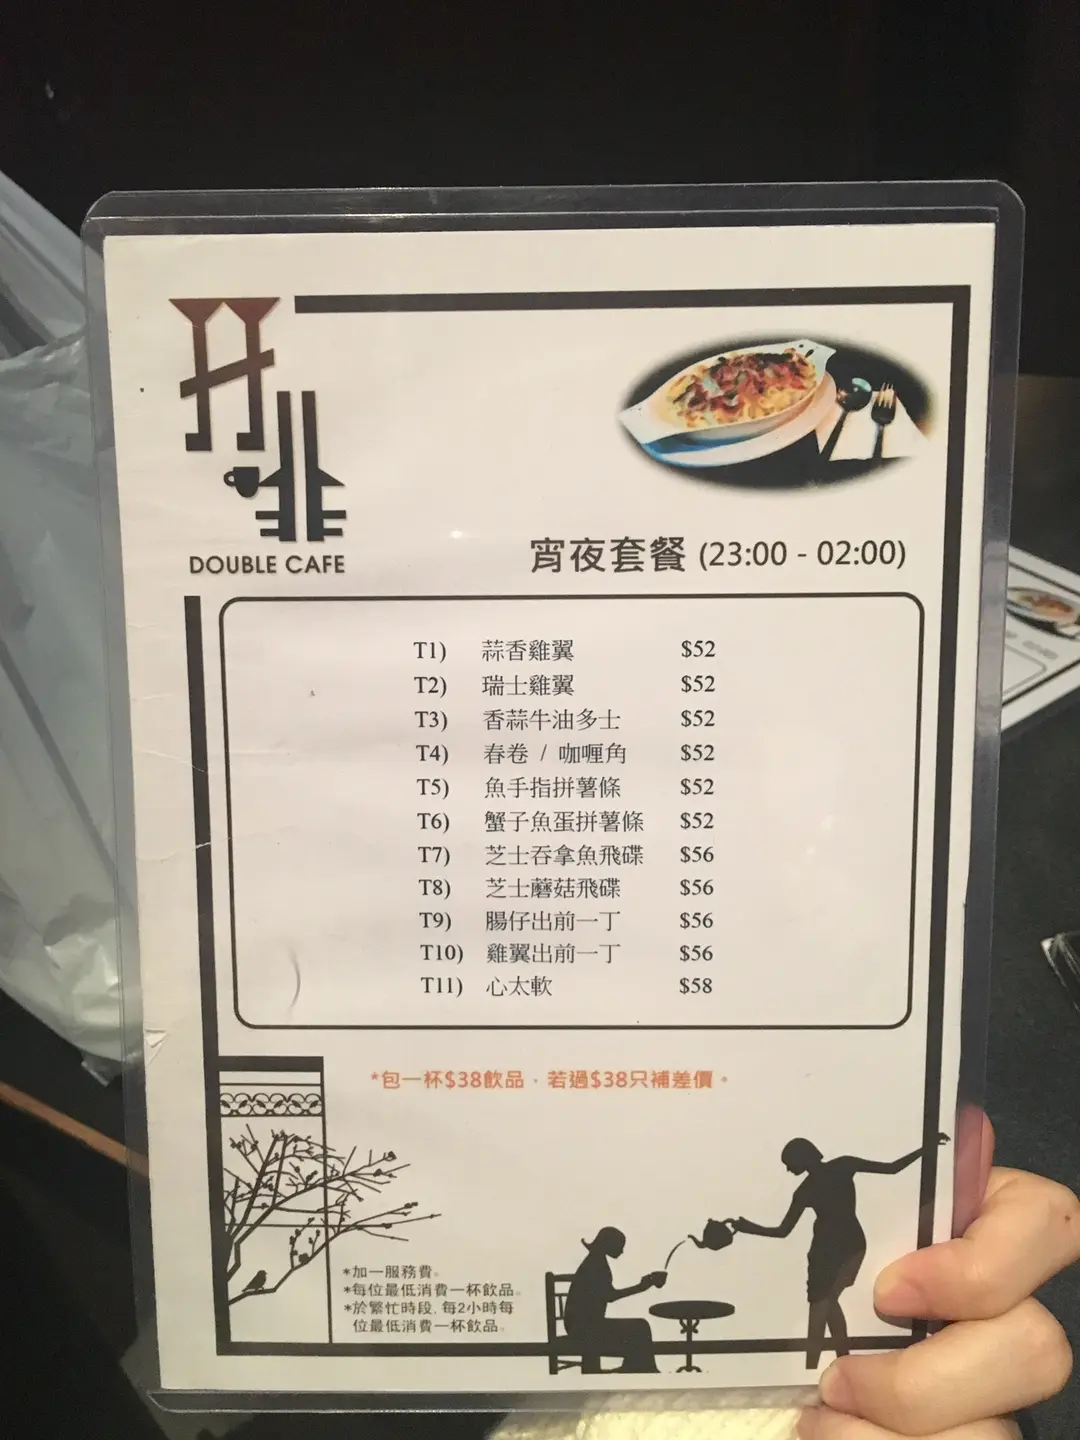 DOUBLE CAFE
宵夜套餐 (23:00 - 02:00)
T1) 蒜香雞翼 $52
T2) 瑞士雞翼 $52
T3) 香蒜牛油多士 $52
T4) 春卷 / 咖喱角 $52
T5) 魚手指拼薯條 $52
T6) 蟹子魚蛋拼薯條 $52
T7) 芝士吞拿魚飛碟 $56
T8) 芝士蘑菇飛碟 $56
T9) 腸仔出前一丁 $56
T10) 雞翼出前一丁 $56
T11) 心太軟 $58
*包一杯$38飲品，若過$38只補差價。
*加一服務費。
*每位最低消費一杯飲品。
*於繁忙時段, 每2小時每
位最低消費一杯飲品。